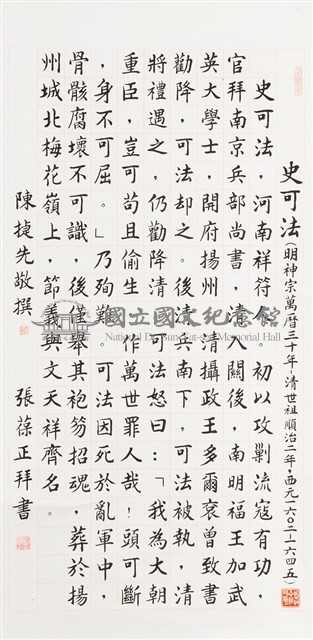 史可法(明神宗萬曆三十年・清世祖順治二年,西元一六〇二—一六四五)
史可法,河南祥符人。初以攻剿流寇有功,
官拜南京兵部尚書,清入關後,南明福王加武
英大學士,開府揚州。清攝政王多爾袞曾致書
勸降,可法却之。後清兵南下,可法被執,清
將禮遇之,仍勸降清,可法怒曰:「我為大朝
重臣,豈可苟且偷生,作萬世罪人哉!頭可斷
,身不可屈。」乃殉難。可法因死於亂軍中,
骨骸腐壞不可識,後僅舉其袍笏招魂,葬於揚
州城北梅花嶺上,節義與文天祥齊名。
陳捷先敬撰 張葆正拜書
國立國父紀念館
National Dr. Sun Yat-sen Memorial Hall